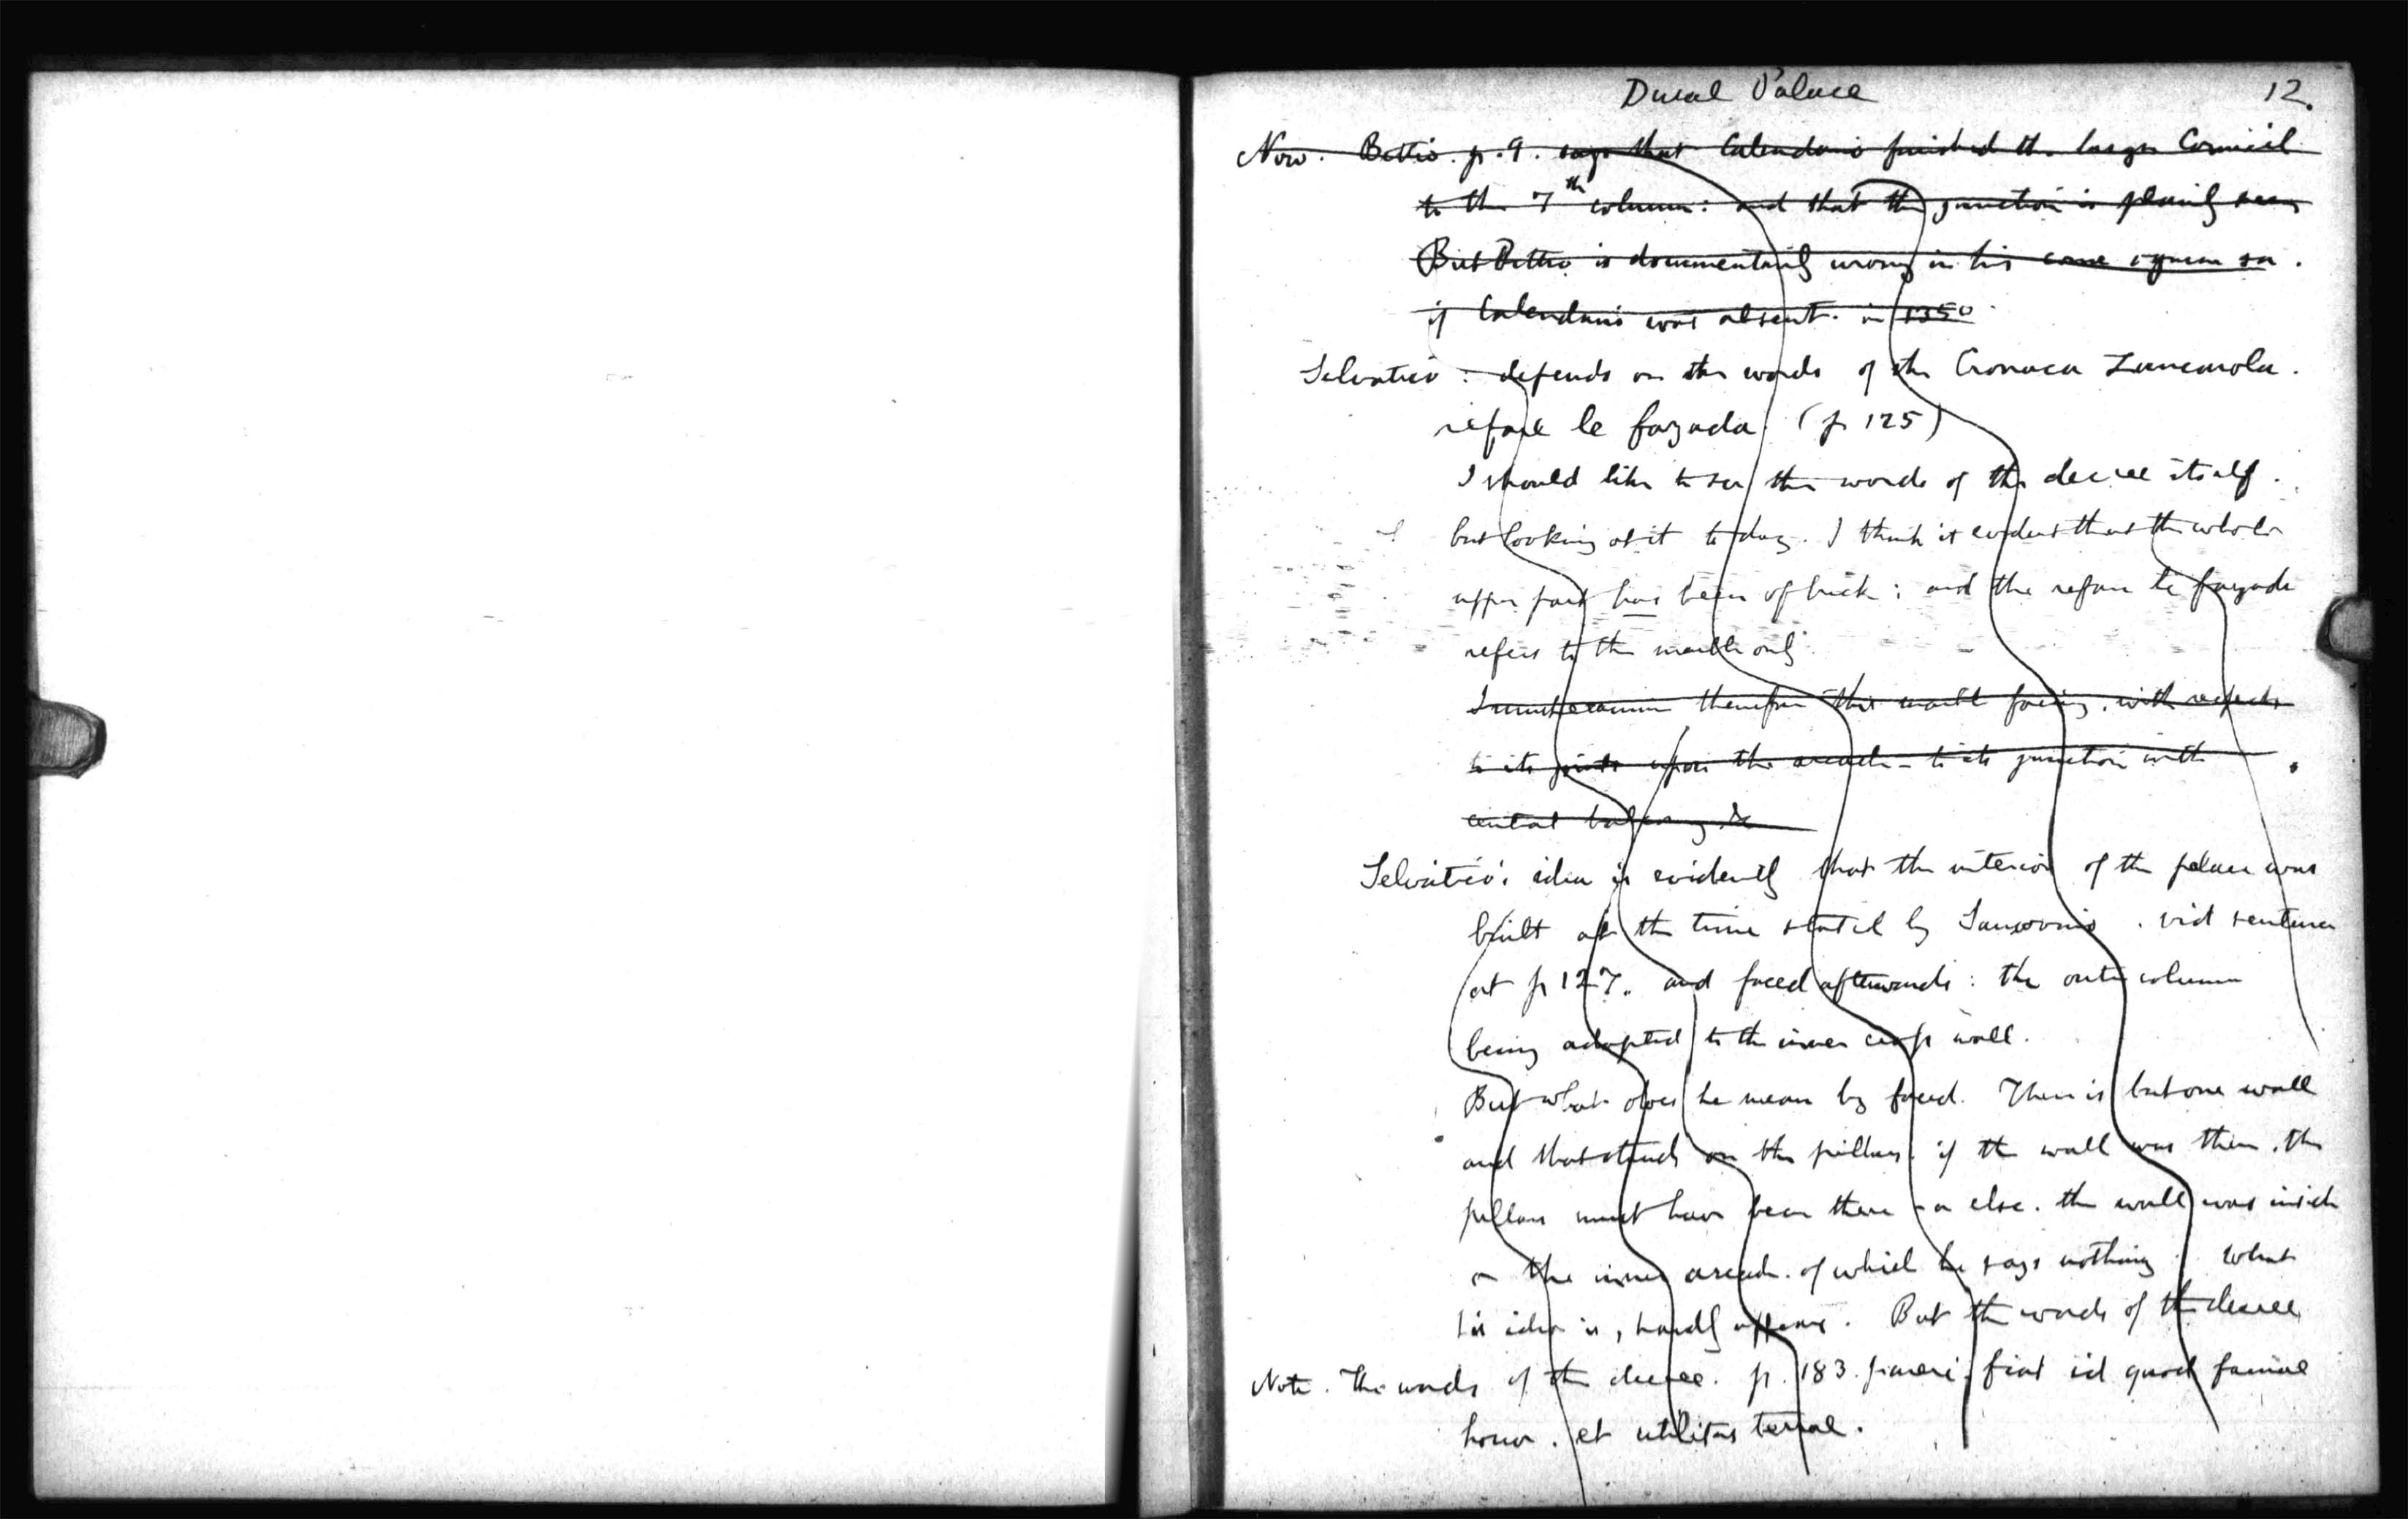 Ducal Palace 12.
Now. Bettio. p. 9. says that Calendario finished the larger Council
to the 7th column: and that the junction is plainly seen
But Bettio is documentarily wrong in his
if Calendario was absent. in 1350
Selvatico: depends on the words of the Cronaca Zancarola.
refare le fazada (p 125)
I should like to see the words of the decree itself.
but looking at it to day. I think it evident that the whole
upper part has been of brick: and the refare le fazada
refers to the marble only.
I must examine therefore this marble facing. with respect
to its joints upon the arcade - to its junction with
central balcony &c
Selvatico's idea is evidently that the interior of the palace was
built at the time stated by Sansovino. vid sentence
at p 127. and faced afterwards: the outer column
being adapted to the inner cross wall.
But what does he mean by faced. There is but one wall
and that stands on the pillars. if the wall was there. the
pillars must have been there - or else. the wall was inside
on the inner arcade. of which he says nothing. What
his idea is, hardly appears. But the words of the decree
Note. The words of the decree. p. 183. fiat id quod
honor. et utilitas terrae.